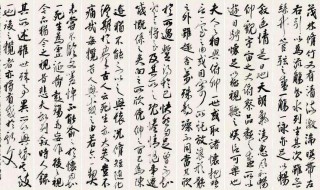 茂林修竹又有清流激湍映帶
左右引以為流觴曲水列坐其次雖無
絲竹管弦之盛一觴一詠亦足以暢
敘幽情是日也天朗氣清惠風和暢
仰觀宇宙之大俯察品類之盛所以
遊目騁懷足以極視聽之娛信可樂也
夫人之相與俯仰一世或取諸懷抱
言一室之內或因寄所託放浪形骸
之外雖趣舍萬殊靜躁不同當其欣
於所遇暫得於己快然自足不知老之
將至及其所之既倦情隨事遷感
慨係之矣向之所欣俛仰之間已為陳
迹猶不能不以之興懷況修短隨化
終期於盡古人云死生亦大矣豈不
痛哉每覽昔人興感之由若合一契
未嘗不臨文嗟悼不能喻之於懷固知
一死生為虛誕齊彭殤為妄作後之視
今亦猶今之視昔悲夫故列敘時人錄
其所述雖世殊事異所以興懷其致一
也後之覽者亦將有感於斯文